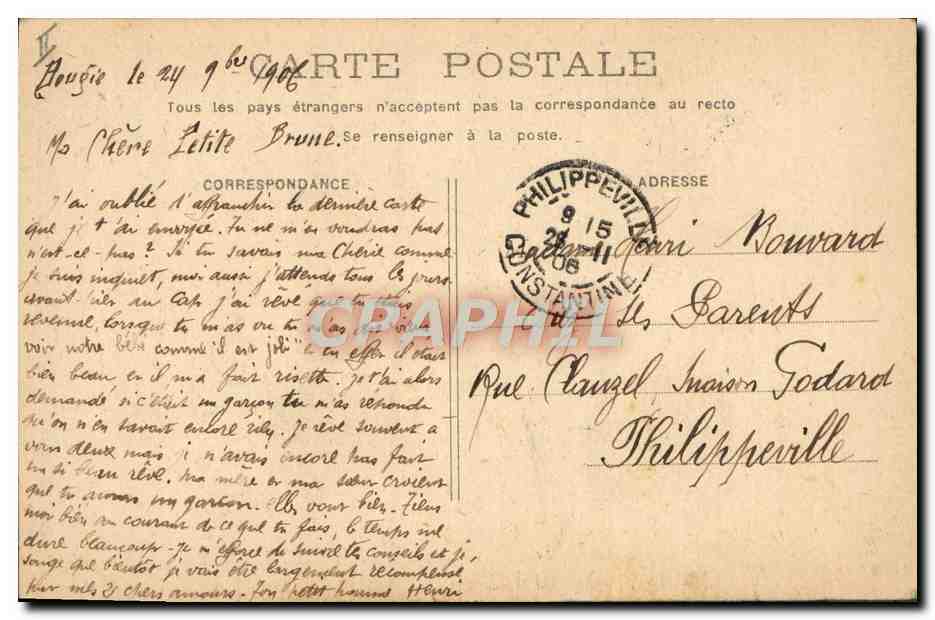 II
CARTE POSTALE
Bougie le 24 9bre 1906
Tous les pays étrangers n'acceptent pas la correspondance au recto
Se renseigner à la poste.
Ma Chère Petite Brune.
CORRESPONDANCE
J'ai oublié d'affranchir la dernière carte
que je t'ai envoyée. Tu ne m'en voudras pas
n'est-ce-pas? Si tu savais ma Chérie comme
je suis inquiet, moi aussi j'attends tous les jours
avant-hier au Cap j'ai rêvé que tu étais
revenue, lorsque tu m'as vu tu m'as dit viens
voir notre bébé comme "il est joli" et en effet il était
bien beau et il m'a fait risette. Je t'ai alors
demandé si c'était un garçon tu m'as répondu
qu'on n'en savait encore rien. Je rêve souvent à
vous deux mais je n'avais encore pas fait
un si beau rêve. Ma mère et ma sœur croient
que tu auras un garçon. Elles vont bien. Tiens
moi bien au courant de ce que tu fais, le temps me
dure beaucoup. Je m'efforce de suivre tes conseils et je
songe que bientôt je vais être largement récompensé
par mes 2 chers amours. Ton petit homme Henri
ADRESSE
PHILIPPEVILLE
9 15
24 11
06
CONSTANTINE
Madame Henri Bouvard
chez ses Parents
Rue Clauzel, maison Godard
Philippeville
CPAPHIL